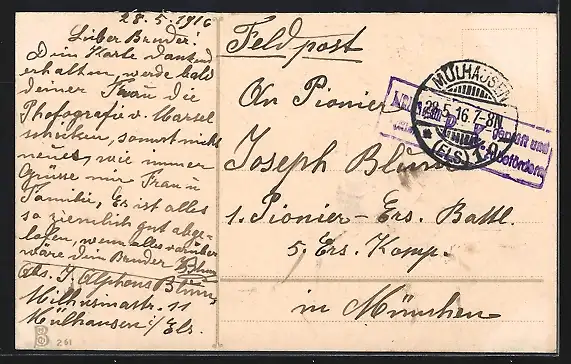 28.5.1916
Lieber Bruder!
Dein Karte dankend
erhalten, werde bald
deiner Frau die
Photografie v. Marsel
schicken, sonst nicht
neues, wie immer
Grüsse mir Frau u
Familie, Es ist alles
so ziemlich gut abge-
lofen, wenn alles vorüber
wäre dein Bruder
Abs. J. Alphons Blum
11
Mülhausen i/Els.
261
Feldpost
An Pionier
Joseph Blum
1. Pionier-Ers. Battl.
5. Ers. Komp.
in München
MÜLHAUSEN
28.5.16.7-8N
* (ELS) 1
geprüft und